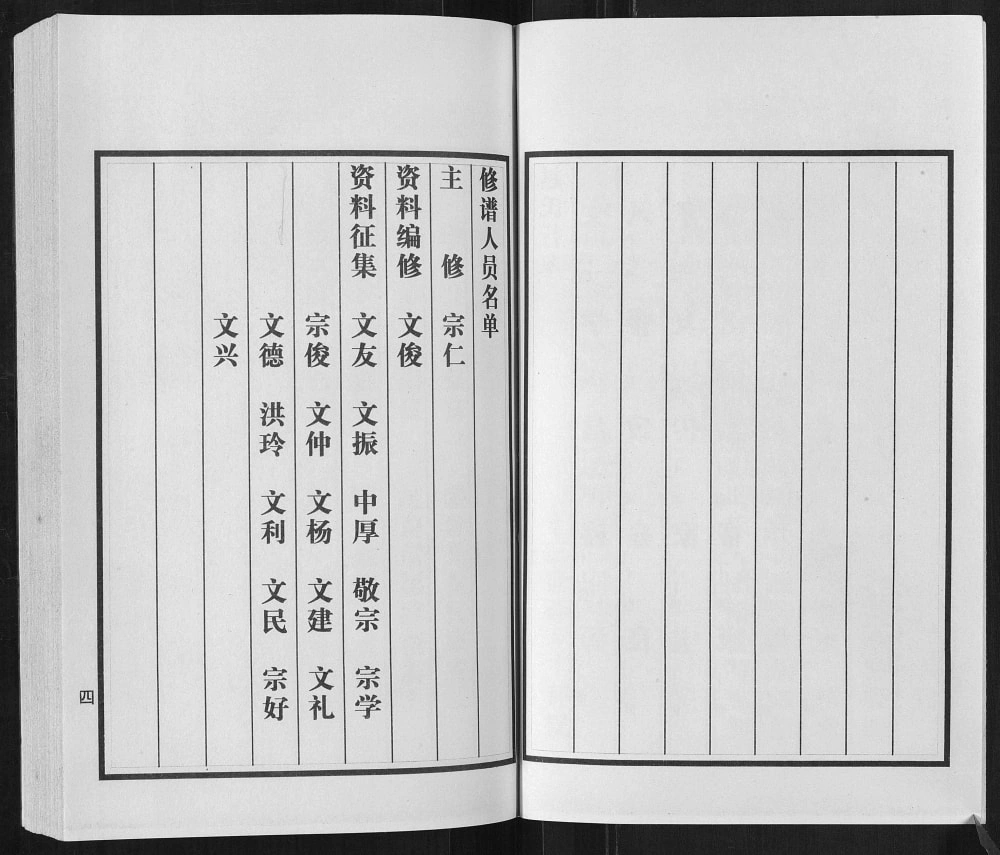 修谱人员名单
主 修 宗仁
资料编修 文俊
资料征集 文友 文振 中厚 敬宗 宗学
宗俊 文仲 文杨 文建 文礼
文德 洪玲 文利 文民 宗好
文兴
四